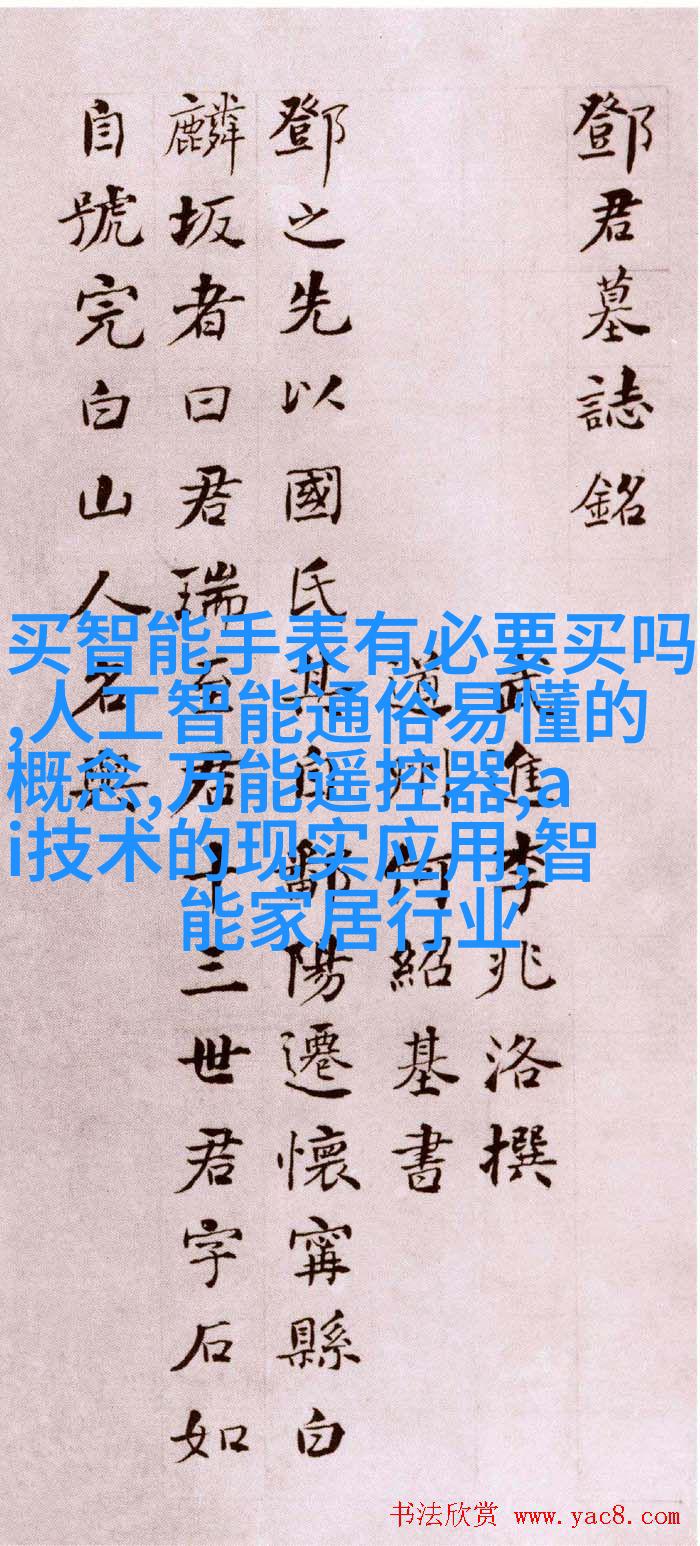 鄧君墓誌銘
武進李兆洛撰
道州何紹基書
鄧之先以國氏其自鄱陽遷懷寗縣白
麟坂者曰君瑞至君十三世君字石如
自號完白山人名與
买智能手表有必要买吗
,人工智能通俗易懂的
概念,万能遥控器,a
i技术的现实应用,智
能家居行业
书法欣赏 www.yac8.com